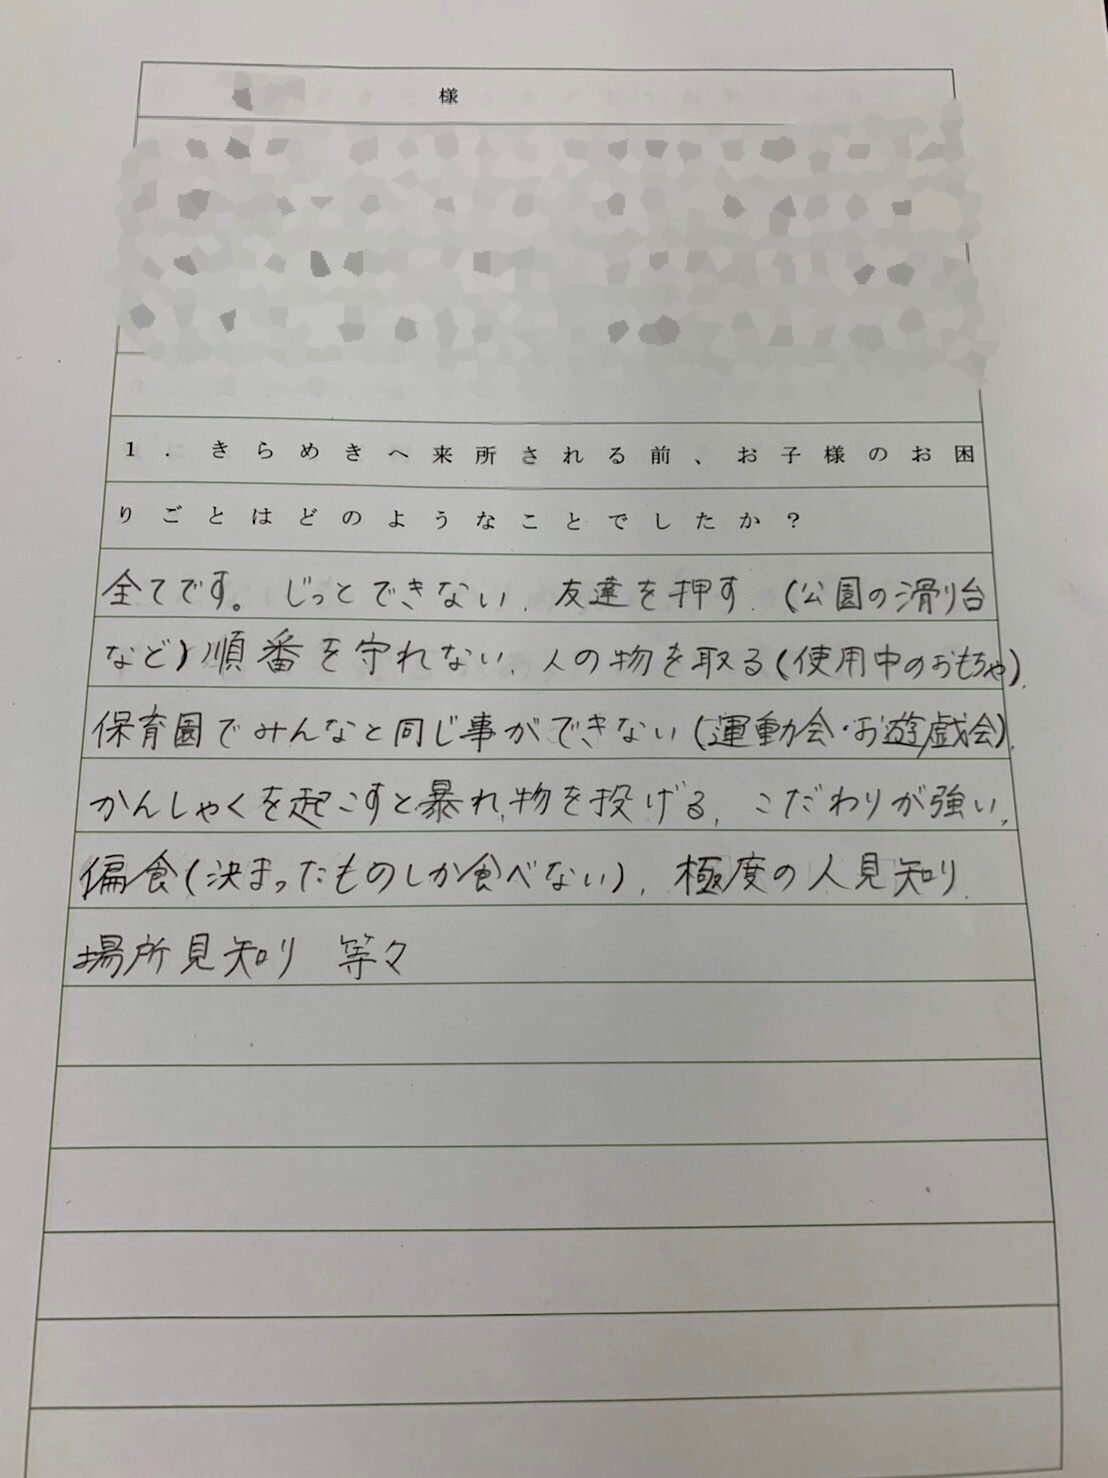 様
1．きらめきへ来所される前、お子様のお困
りごとはどのようなことでしたか？
全てです。じっとできない、友達を押す、(公園の滑り台
など)順番を守れない、人の物を取る(使用中のおもちゃ)、
保育園でみんなと同じ事ができない(運動会・お遊戯会)、
かんしゃくを起こすと暴れ、物を投げる、こだわりが強い、
偏食(決まったものしか食べない)、極度の人見知り、
場所見知り 等々